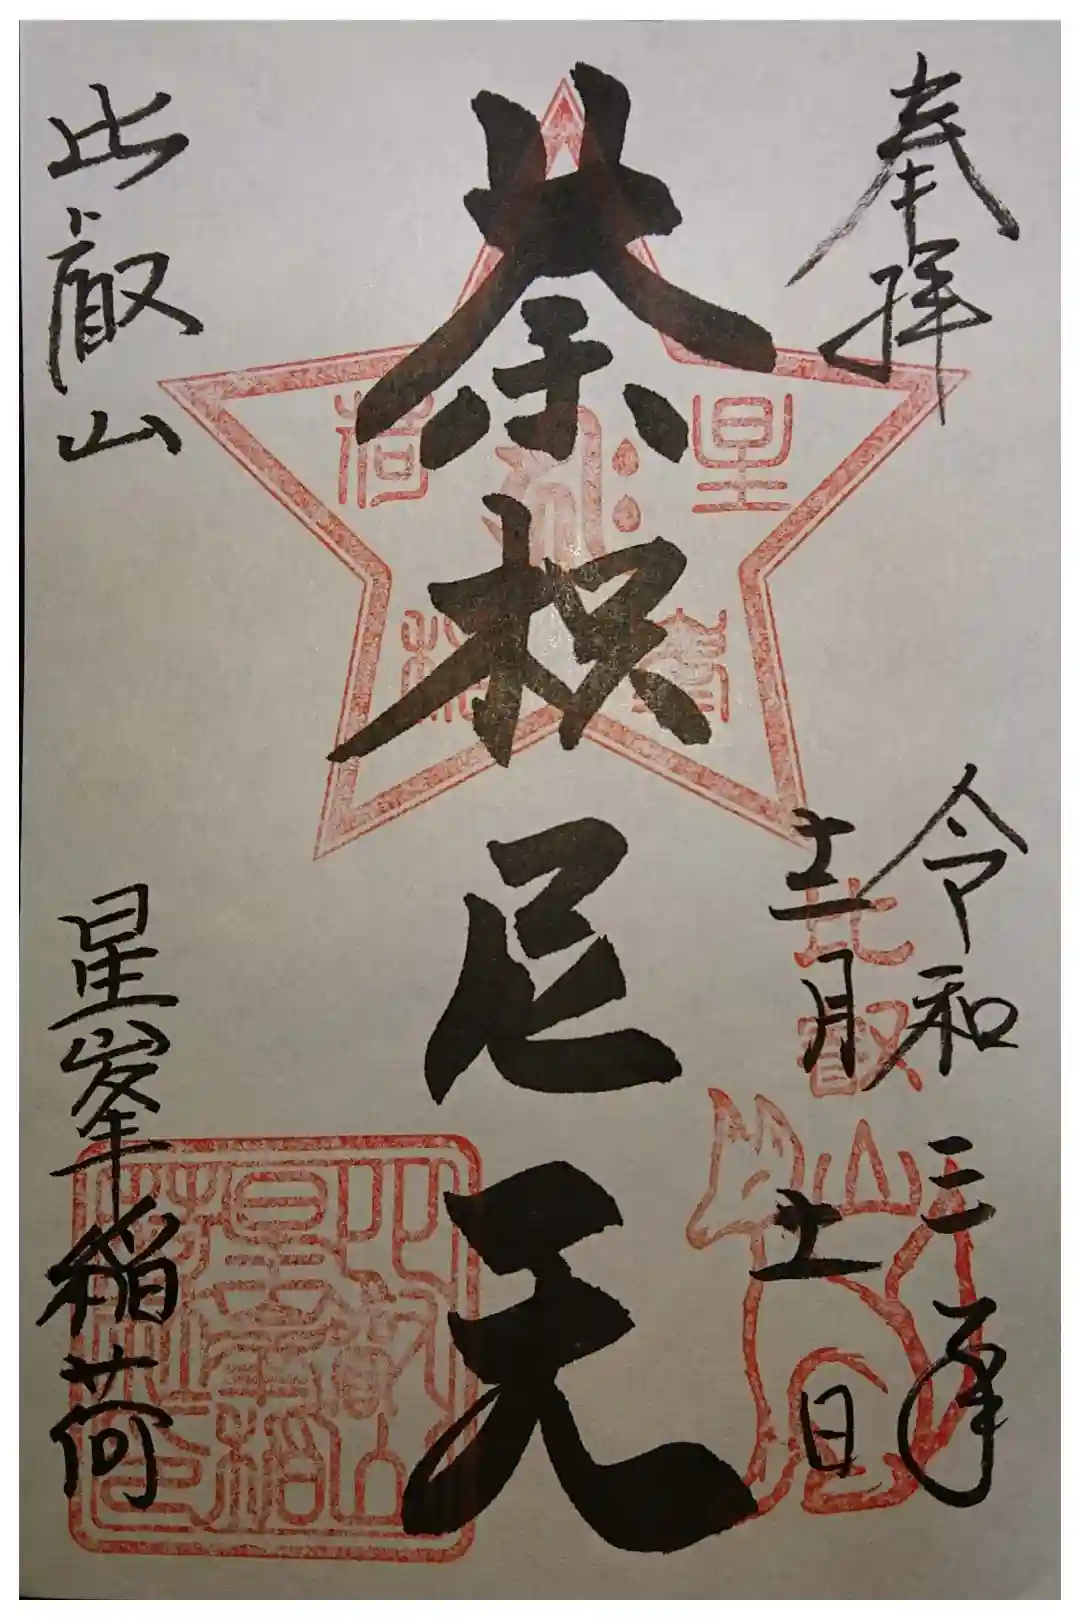 奉拝
令和三年
十二月十一日
荼枳尼天
比叡山
星峯稲荷
星峯
稲荷
比叡山